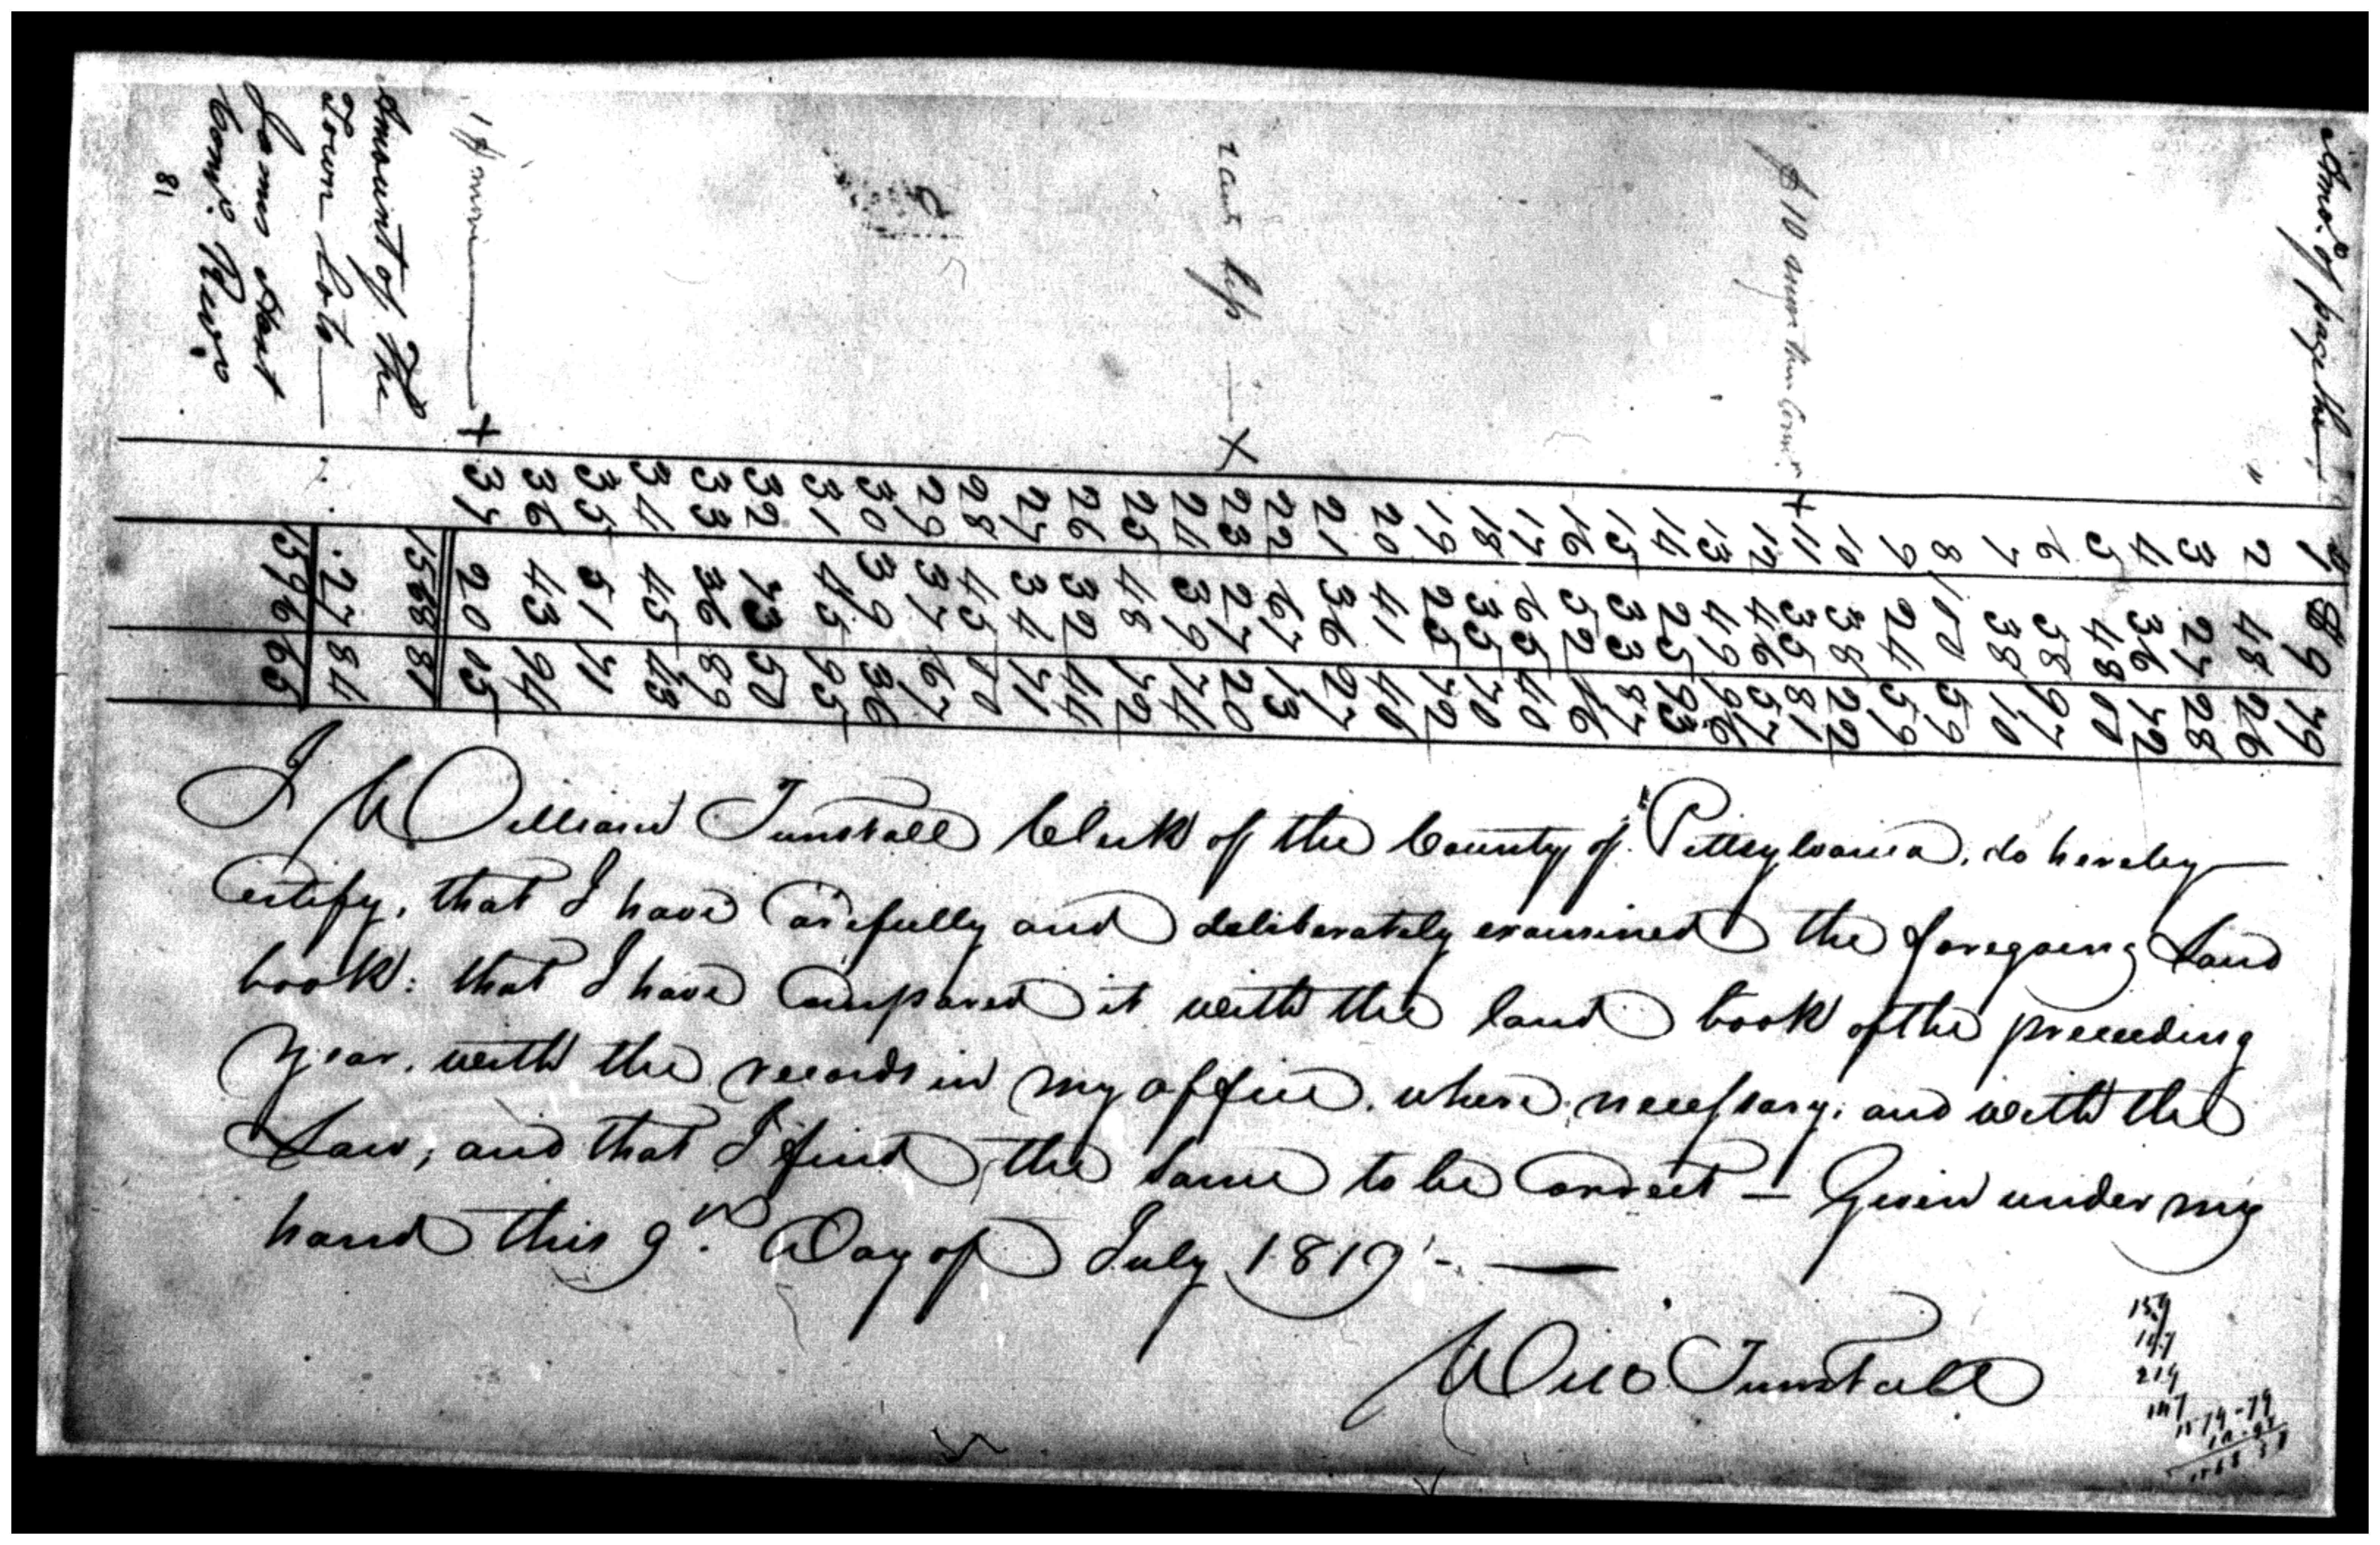 Amo. of page the — 1 $ 89 79
" 2 48 26
3 27 28
4 36 72
5 48 00
6 58 97
7 38 10
8 100 59
9 24 59
10 38 22
$10 more than Comr. + 11 35 81
12 46 57
13 49 96
14 25 93
15 33 87
16 52 46
17 65 40
18 35 70
19 25 72
20 41 40
21 36 27
22 67 13
1 cent less — X 23 27 20
24 39 74
25 48 72
26 32 44
27 34 71
28 45 00
29 37 67
30 39 36
31 45 95
32 73 50
33 36 89
34 45 43
35 51 71
36 43 94
more — + 37 20 15
Amount of the 1568 81
Town Lots — 27 84
1596 65
Comr. Revo
81
I William Tunstall Clerk of the County of Pittsylvania, do hereby
Certify, that I have Carefully and deliberately examined the foregoing Land
book: that I have Compared it with the land book of the preceeding
Year, with the records in my office, where necessary; and with the
Law; and that I find the same to be Correct — Given under my
hand this 9th. Day of July 1819 —
Will Tunstall
159
147
219
147